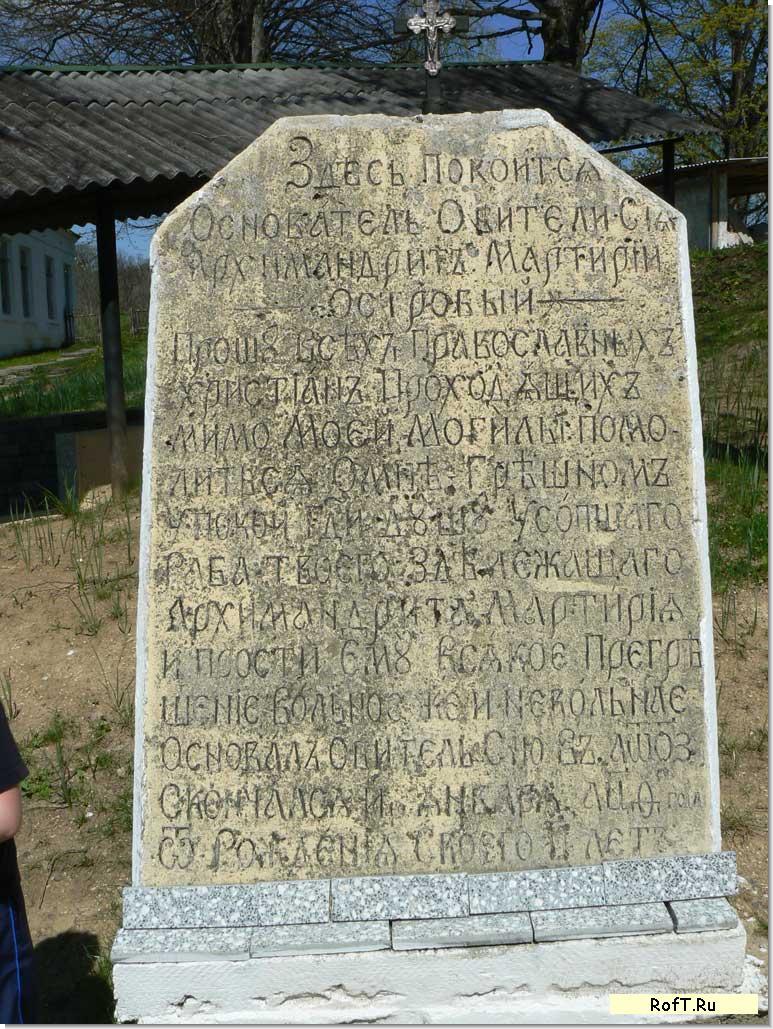 Здесь Покоитсѧ
Основатель Обители Сіѧ
Архимандритъ Мартирій
Островый
Прошꙋ всѣхъ православныхъ
христіанъ Проходѧщихъ
мимо Моей Могилы помо-
литьсѧ О мнѣ Грѣшномъ
упокой Гди дꙋшꙋ усопшаго
раба твоего здѣ лежащаго
Архимандрита Мартирія
и прости Емꙋ всѧкое Прегрѣ
шеніе вольное же и невольнае
Основалъ Обитель Сію въ
Скончалсѧ Ѧнварѧ
Ѿ Рожденія Своего лѣтъ
RofT.Ru